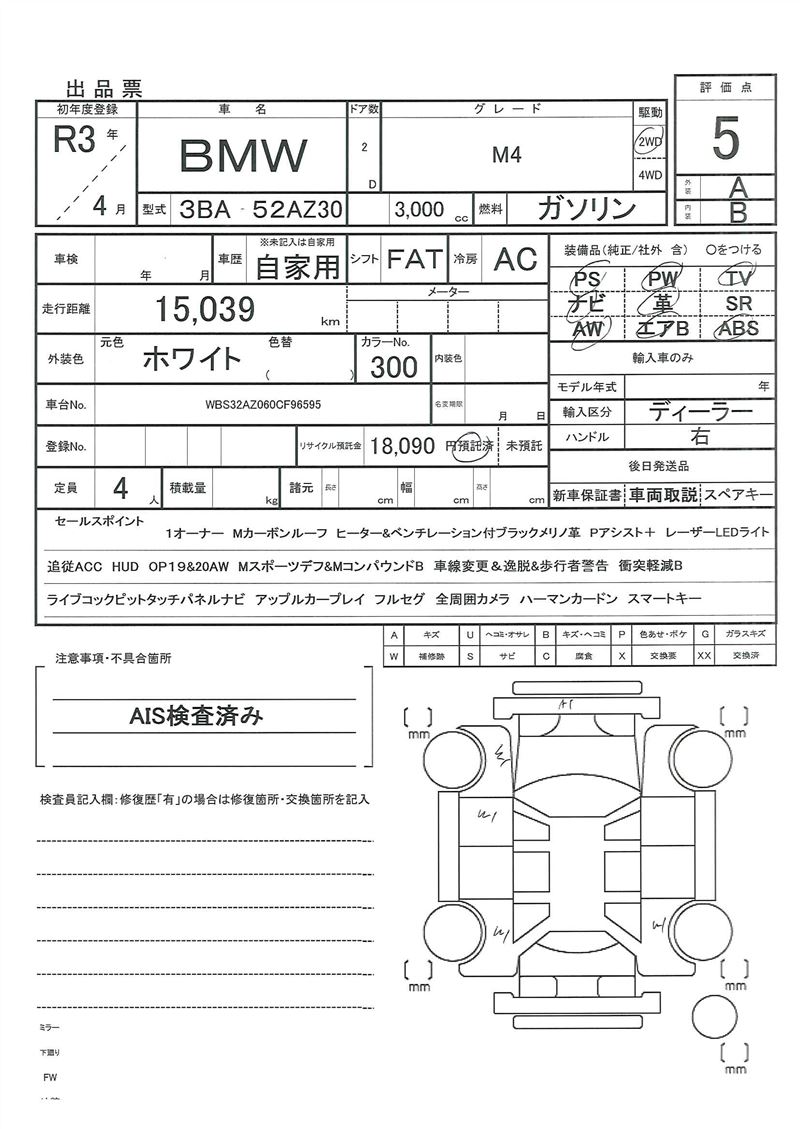 出品票
初年度登録 車名 ドア数 グレード 駆動 評価点
R3年 4月
BMW
2 D
M4
2WD
4WD
5
外装 A
内装 B
型式 3BA - 52AZ30 3,000 cc 燃料 ガソリン
車検 年 月 車歴 ※未記入は自家用 自家用 シフト FAT 冷房 AC
装備品(純正/社外 含) 〇をつける
PS PW TV
ナビ 革 SR
AW エアB ABS
走行距離 15,039 km メーター
外装色 元色 ホワイト 色替 ( ) カラーNo. 300 内装色
輸入車のみ
モデル年式 年
車台No. WBS32AZ060CF96595 名変期限 月 日
輸入区分 ディーラー
ハンドル 右
登録No. リサイクル預託金 18,090 円預託済 未預託
後日発送品
定員 4 人 積載量 kg 諸元 長さ cm 幅 cm 高さ cm
新車保証書 車両取説 スペアキー
セールスポイント
1オーナー Mカーボンルーフ ヒーター&ベンチレーション付ブラックメリノ革 Pアシスト+ レーザーLEDライト
追従ACC HUD OP19&20AW Mスポーツデフ&MコンパウンドB 車線変更&逸脱&歩行者警告 衝突軽減B
ライブコックピットタッチパネルナビ アップルカープレイ フルセグ 全周囲カメラ ハーマンカードン スマートキー
A キズ U ヘコミ・オサレ B キズ・ヘコミ P 色あせ・ボケ G ガラスキズ
W 補修跡 S サビ C 腐食 X 交換要 XX 交換済
注意事項・不具合箇所
AIS検査済み
検査員記入欄:修復歴「有」の場合は修復箇所・交換箇所を記入
A1
[ ] mm
[ ] mm
W1
W1
W1
[ ] mm
[ ] mm
[ ] mm
ミラー
下廻り
FW